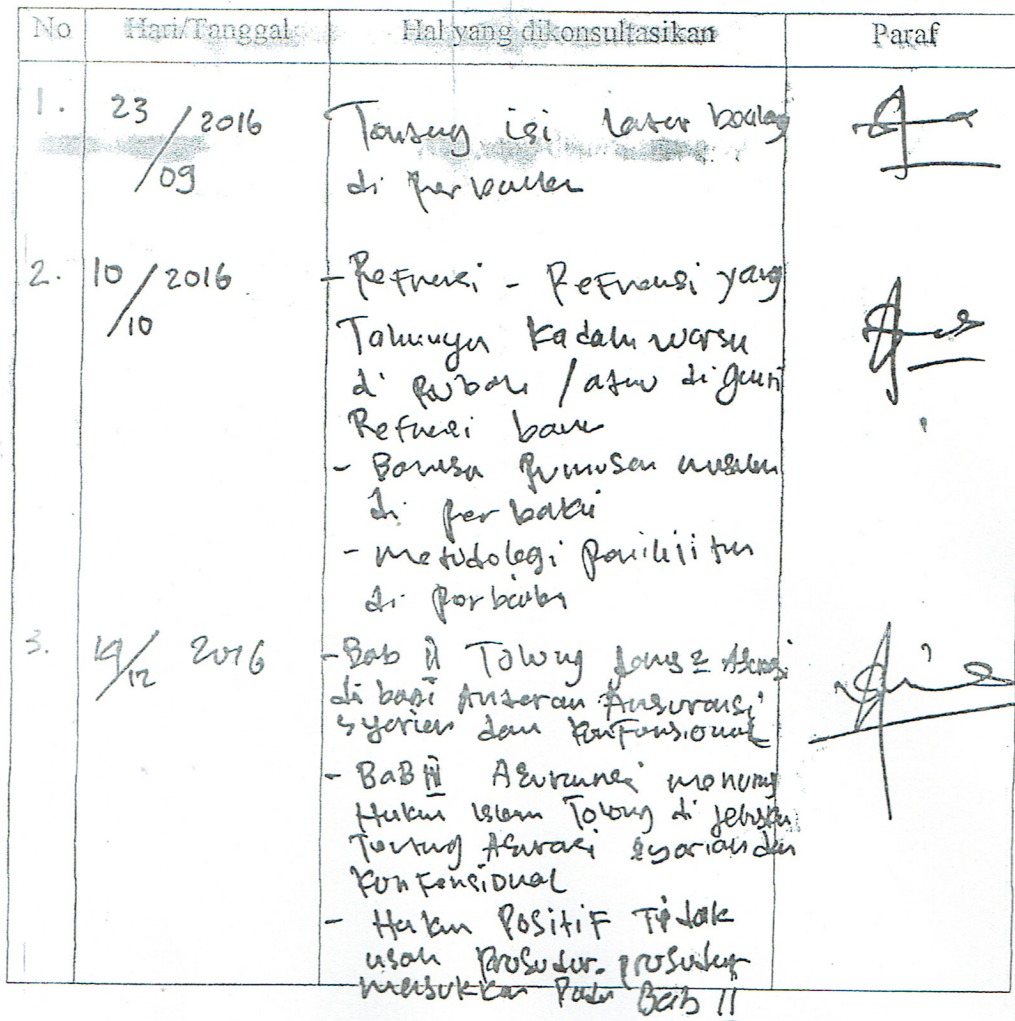 No Hari/Tanggal Hal yang dikonsultasikan Paraf
1. 23/09 2016 Tentang isi latar
di perbaiki
2. 10/10 2016 - Refrensi - Refrensi yang
Tahunnya Kadaluwarsa
di / atau di ganti
Refrensi baru
- Bahasa Rumusan masalah
di perbaiki
- metodologi
di perbaiki
3. 19/12 2016 - Bab II Tolong
di bagi Antaran Ansuransi
syariah dan KonFensional
- BaB III Asuransi
Hukum Islam Tolong di
Tentang Asuransi syariah dan
KonFensional
- Hukum Positif Tidak
usah Prosudur-prosudur
masukkan Pada Bab II